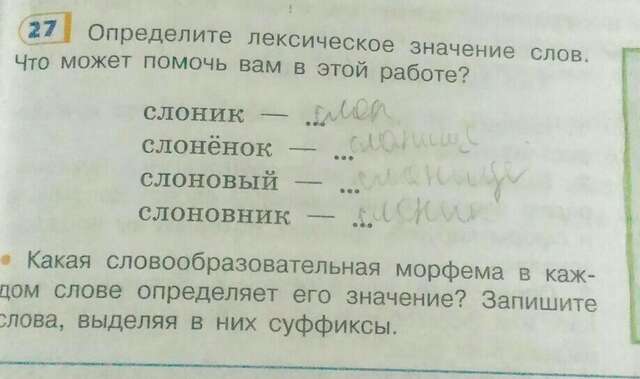 27 Определите лексическое значение слов.
Что может помочь вам в этой работе?
слоник — ... слон
слонёнок — ...
слоновый — ...
слоновник — ... слоник
• Какая словообразовательная морфема в каж-
дом слове определяет его значение? Запишите
слова, выделяя в них суффиксы.